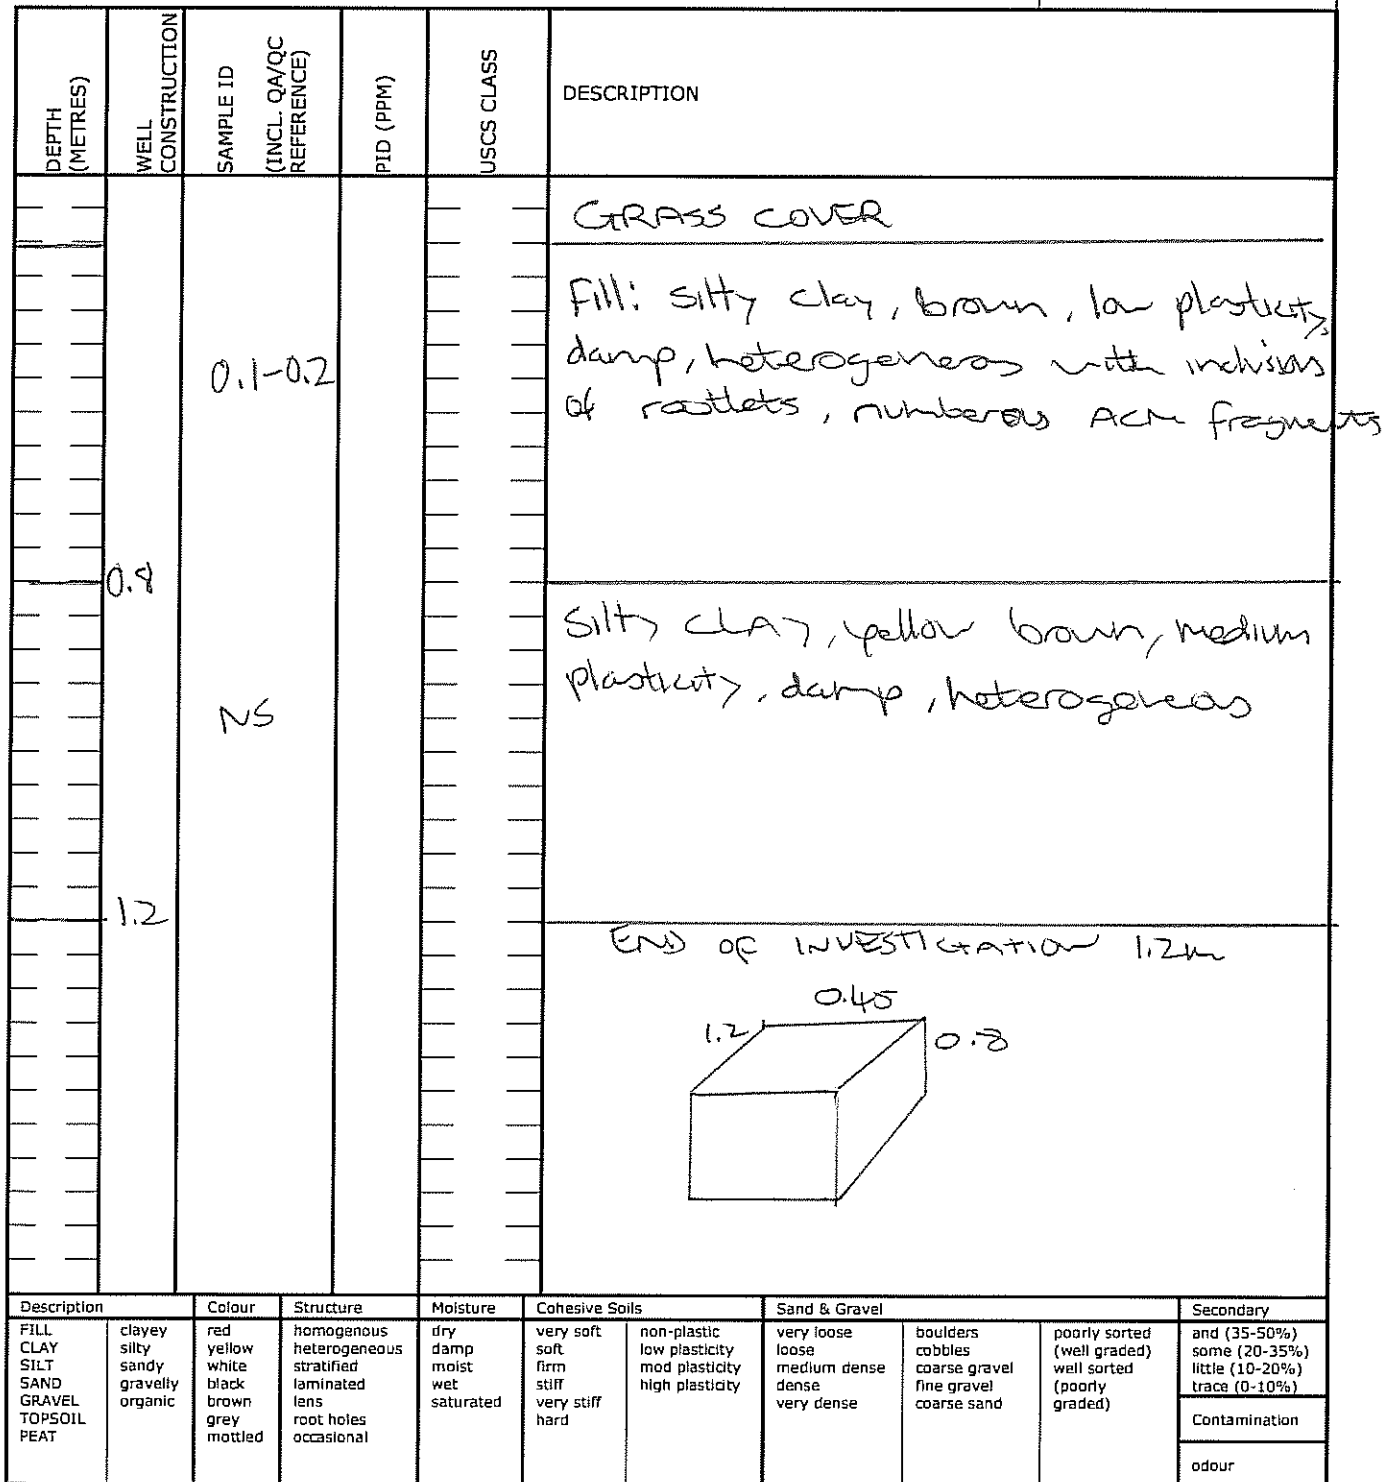 DEPTH
(METRES)
WELL
CONSTRUCTION
SAMPLE ID
(INCL. QA/QC
REFERENCE)
PID (PPM)
USCS CLASS
DESCRIPTION
GRASS COVER
Fill: silty clay, brown, low plasticity,
0.1-0.2
damp, heterogeneos with inclusions
of rootlets, numberous ACM fragments
0.8
Silty CLAY, yellow brown, medium
plasticity, damp, heterogeneos
NS
1.2
END OF INVESTIGATION 1.2m
0.45
1.2
0.8
Description
FILL
CLAY
SILT
SAND
GRAVEL
TOPSOIL
PEAT
clayey
silty
sandy
gravelly
organic
Colour
red
yellow
white
black
brown
grey
mottled
Structure
homogenous
heterogeneous
stratified
laminated
lens
root holes
occasional
Moisture
dry
damp
moist
wet
saturated
Cohesive Soils
very soft
soft
firm
stiff
very stiff
hard
non-plastic
low plasticity
mod plasticity
high plasticity
Sand & Gravel
very loose
loose
medium dense
dense
very dense
boulders
cobbles
coarse gravel
fine gravel
coarse sand
poorly sorted
(well graded)
well sorted
(poorly
graded)
Secondary
and (35-50%)
some (20-35%)
little (10-20%)
trace (0-10%)
Contamination
odour